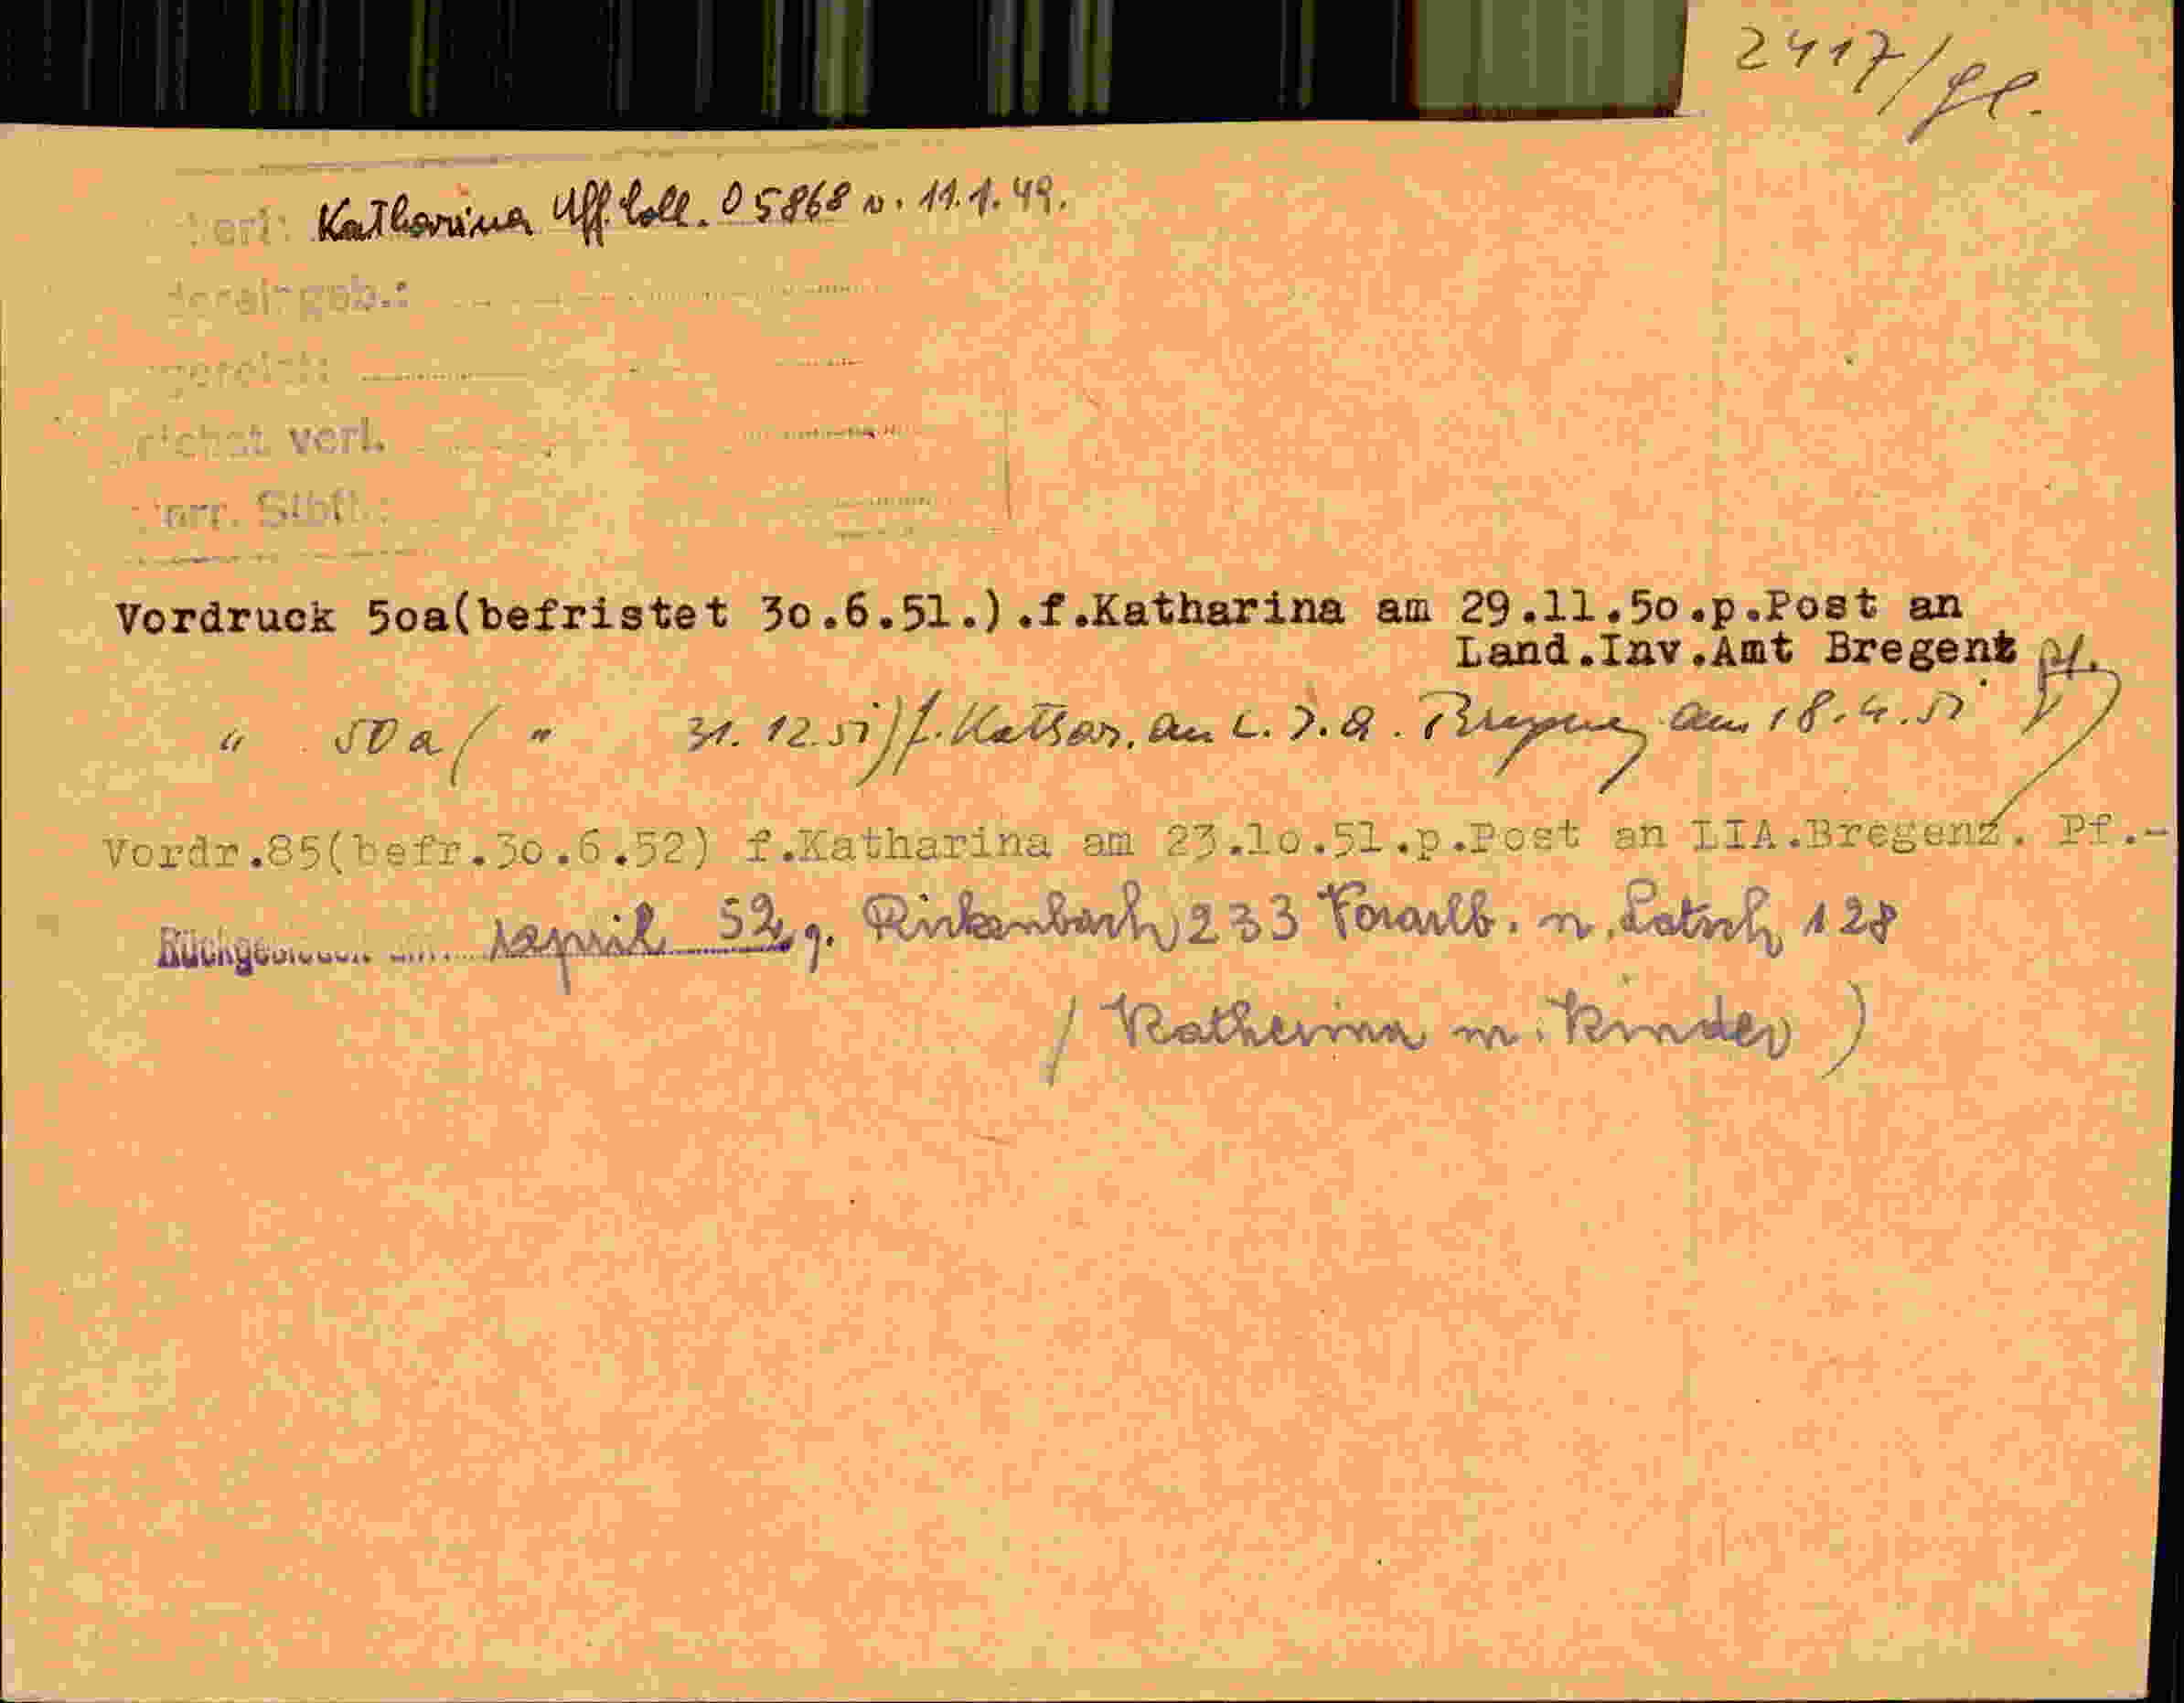 2417/
verl: Katharina 05868 v. 11.1.49.
geb.:
verl.
Vordruck 5oa(befristet 3o.6.51.).f.Katharina am 29.11.5o.p.Post an
Land.Inv.Amt Bregenz Pf.
" 50a ( " 31.12.51) f. Kathar. an L.I.A. Bregenz am 18.4.51
Vordr.85(befr.3o.6.52) f.Katharina am 23.1o.51.p.Post an LIA.Bregenz. Pf.-
Rückgesiedelt am april 52 g. Rickenbach 233 Vorarlb. n. Latsch 128
( Katherina m. Kinder )